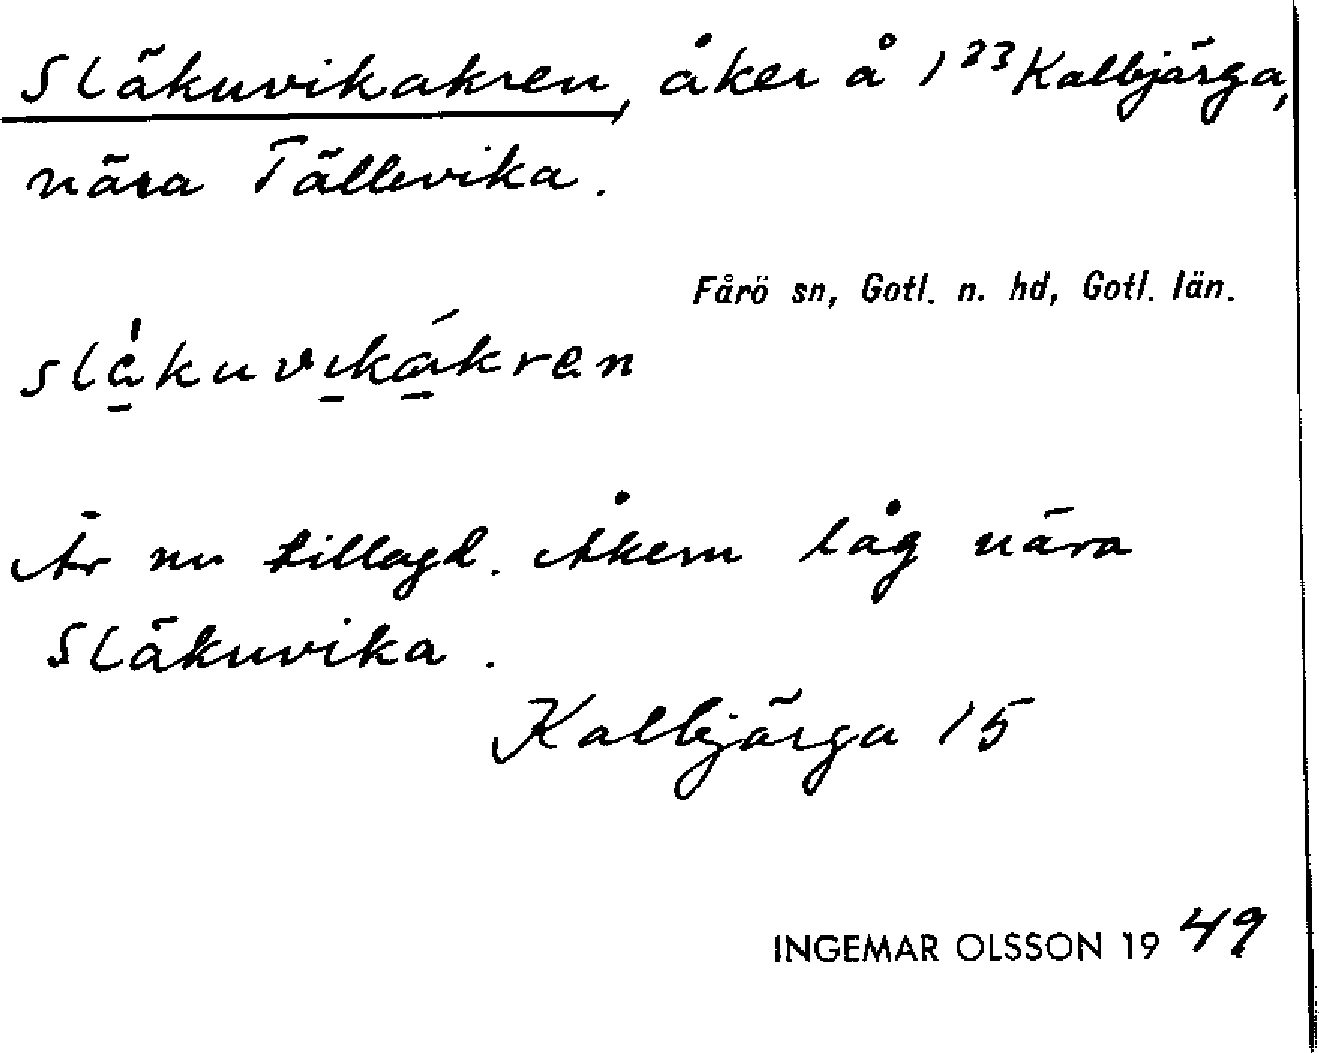 Släkuvikakren, åker å 1²³ Kalbjärga,
nära Tällevika.
Fårö sn, Gotl. n. hd, Gotl. län.
slä̀kuvikákren
Är nu tillagd. Åkern låg nära
Släkuvika.
Kalbjärga 15
INGEMAR OLSSON 1949